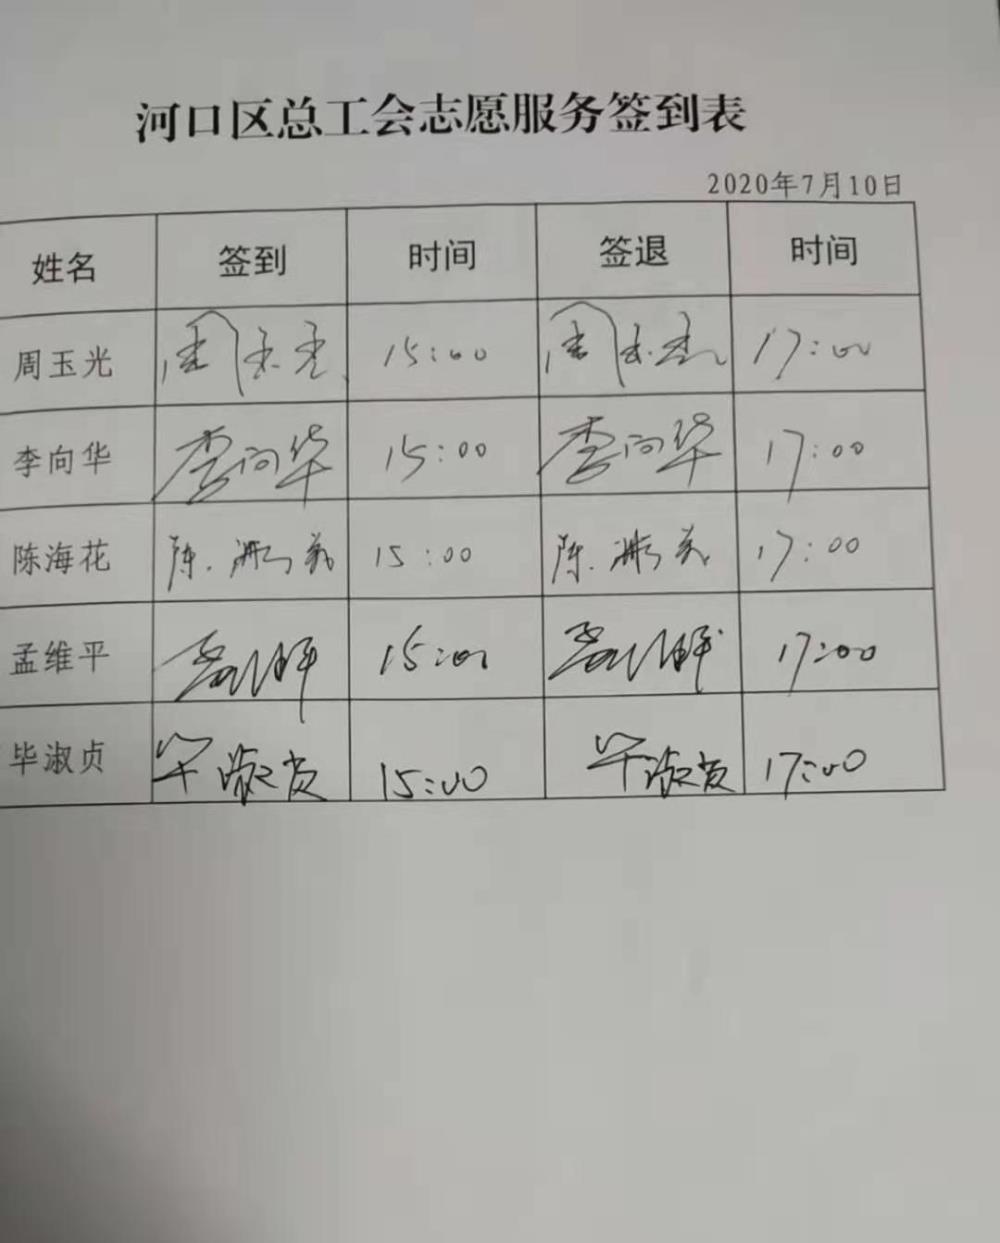 河口区总工会志愿服务签到表
2020年7月10日
姓名 签到 时间 签退 时间
周玉光 周玉光 15:00 周玉光 17:00
李向华 李向华 15:00 李向华 17:00
陈海花 陈海花 15:00 陈海花 17:00
孟维平 孟维平 15:00 孟维平 17:00
毕淑贞 毕淑贞 15:00 毕淑贞 17:00